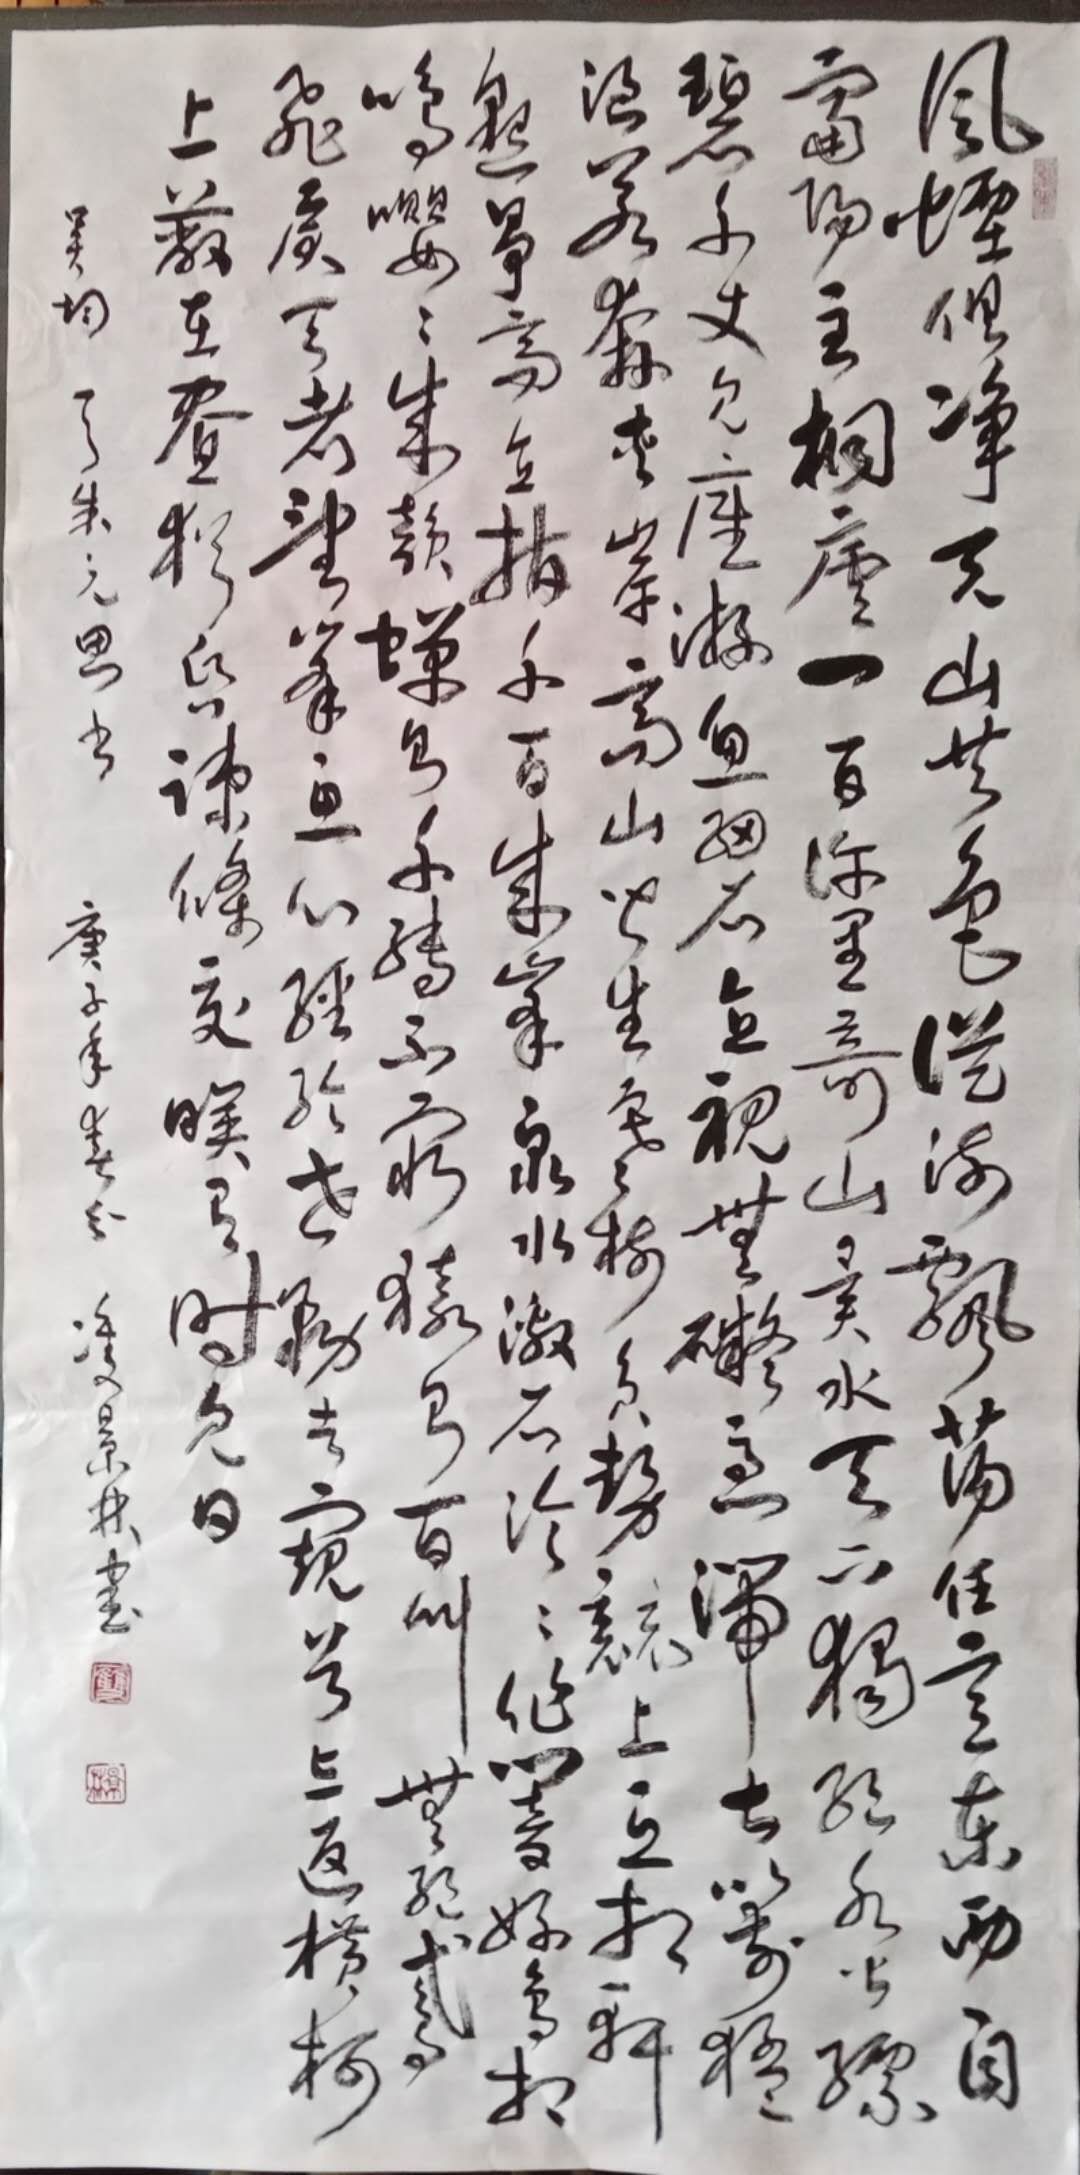 風煙俱净天山共色從流飄蕩任意東西自
富陽至桐廬一百許里奇山異水天下獨絕水皆縹
碧千丈見底游魚細石直視無礙急湍甚箭猛
浪若奔夾岸高山皆生寒樹負勢競上互相軒
邈爭高直指千百成峯泉水激石泠泠作響好鳥相
鳴嚶嚶成韻蟬則千轉不窮猿則百叫無絕鳶
飛戾天者望峯息心經綸世務者窺谷忘返橫柯
上蔽在晝猶昏疎條交映有時見日
吴均 与朱元思书 庚子年春分 凌景林書